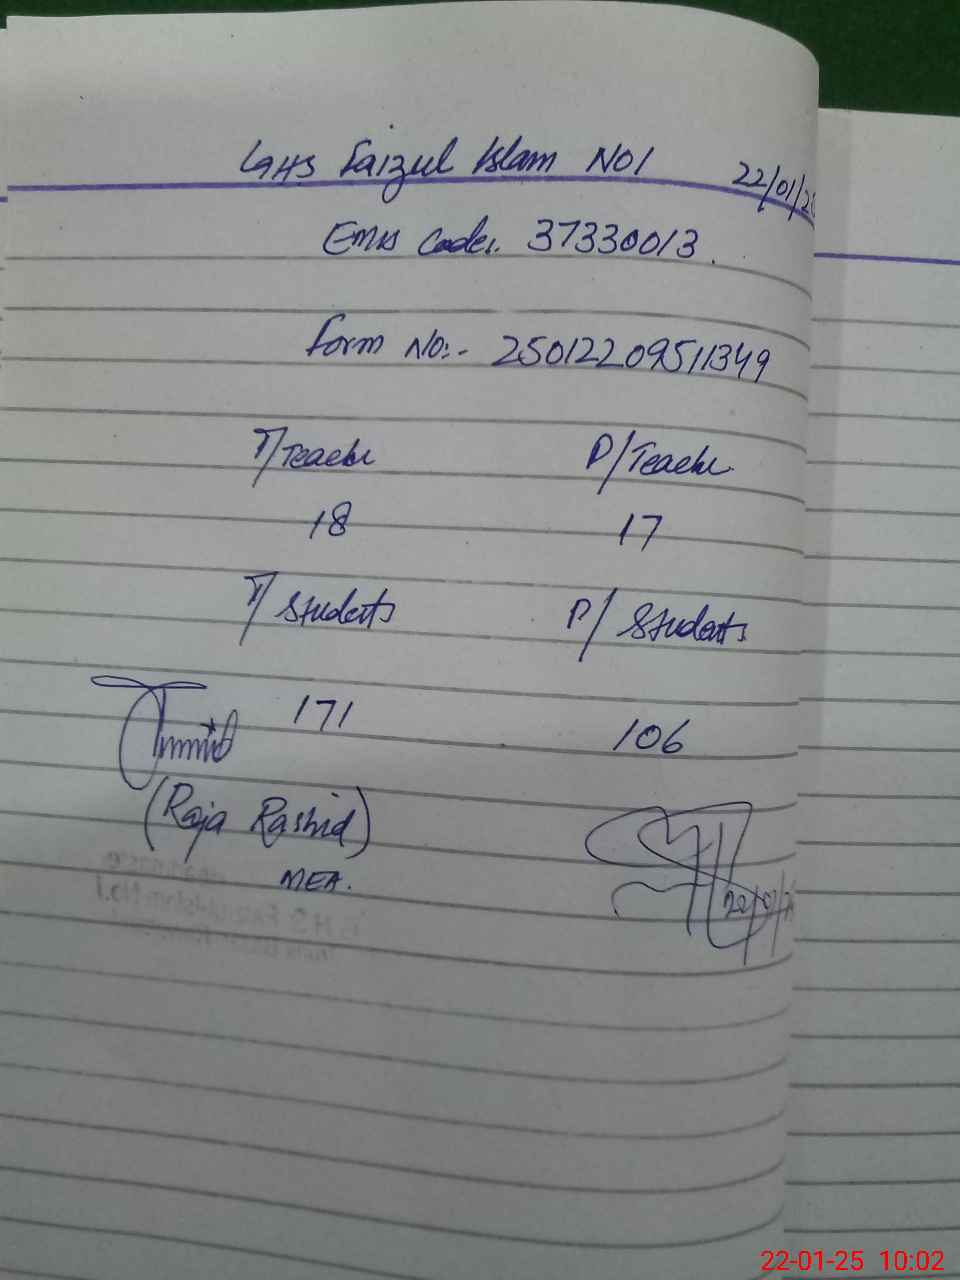 GHS Faizul Islam NO1 22/01/25
EMIS Code:. 37330013.
Form No:- 25012209511349
T/Teacher P/Teacher
18 17
T/Students P/Students
171 106
(Raja Rashid)
MEA.
22/01/25
22-01-25 10:02